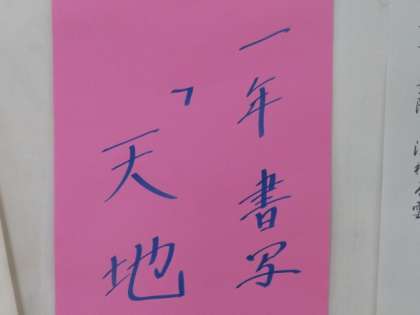 一年 書写
「天地